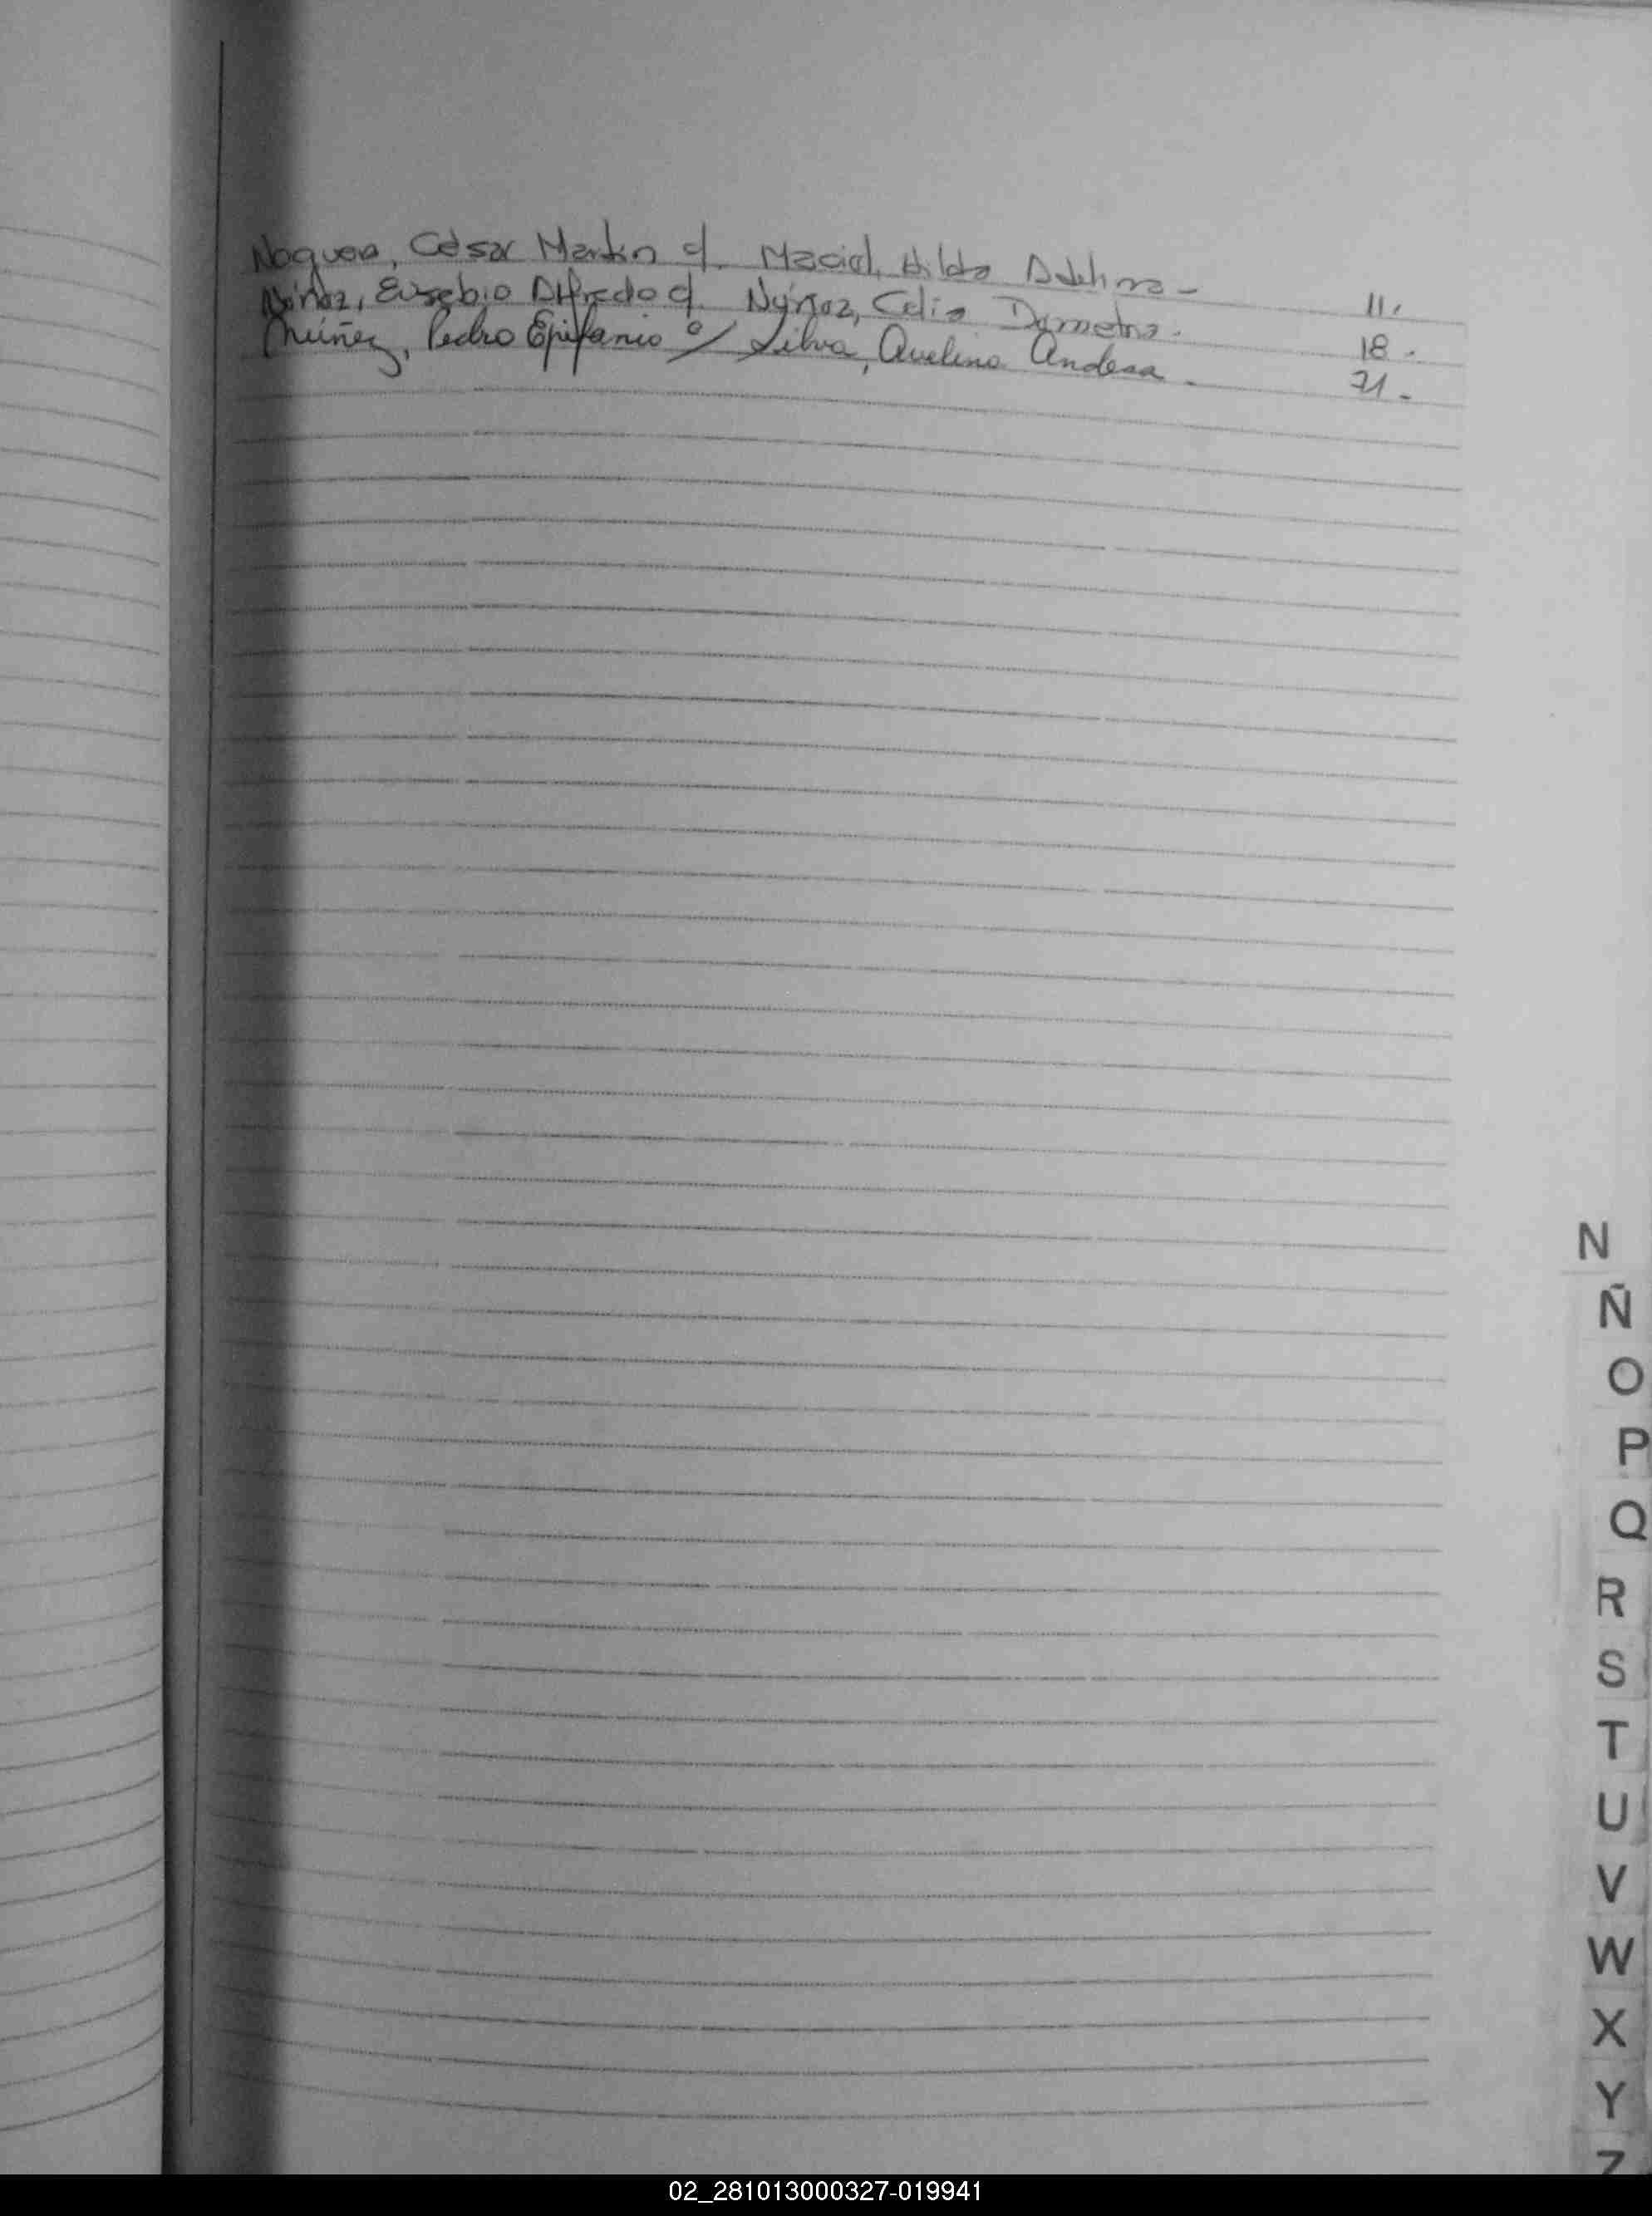 Noguera, César Martin c/. Maciel, Hilda Delfina - 11.
Núñez, Eusebio Alfredo c/. Núñez, Celia Demetria. 18.
Núñez, Pedro Epifanio c/ Silva, Avelina 21.
N
Ñ
O
P
Q
R
S
T
U
V
W
X
Y
Z
02_281013000327-019941